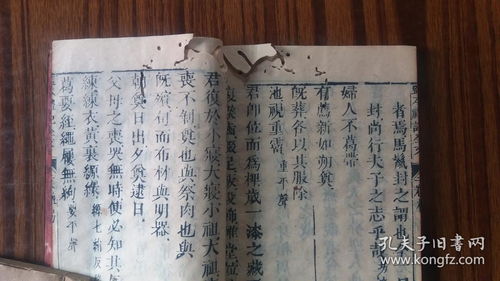 者焉馬鬣封之謂也
封尚行夫子之志乎哉
婦人不葛帶
有薦新如朔奠
既葬各以其服除
池視重霤 重平聲
君即位而爲椑歲一漆之藏
復楔齒綴足飯設飾帷堂並
君復於小寢大寢小祖大祖
喪不剝奠也與祭肉也與
既殯旬而布材與明器
朝奠日出夕奠逮日
父母之喪哭無時使必知其
練練衣黃裏縓緣 縓七絹反
葛要絰繩屨無絇 要平聲
孔夫子旧书网